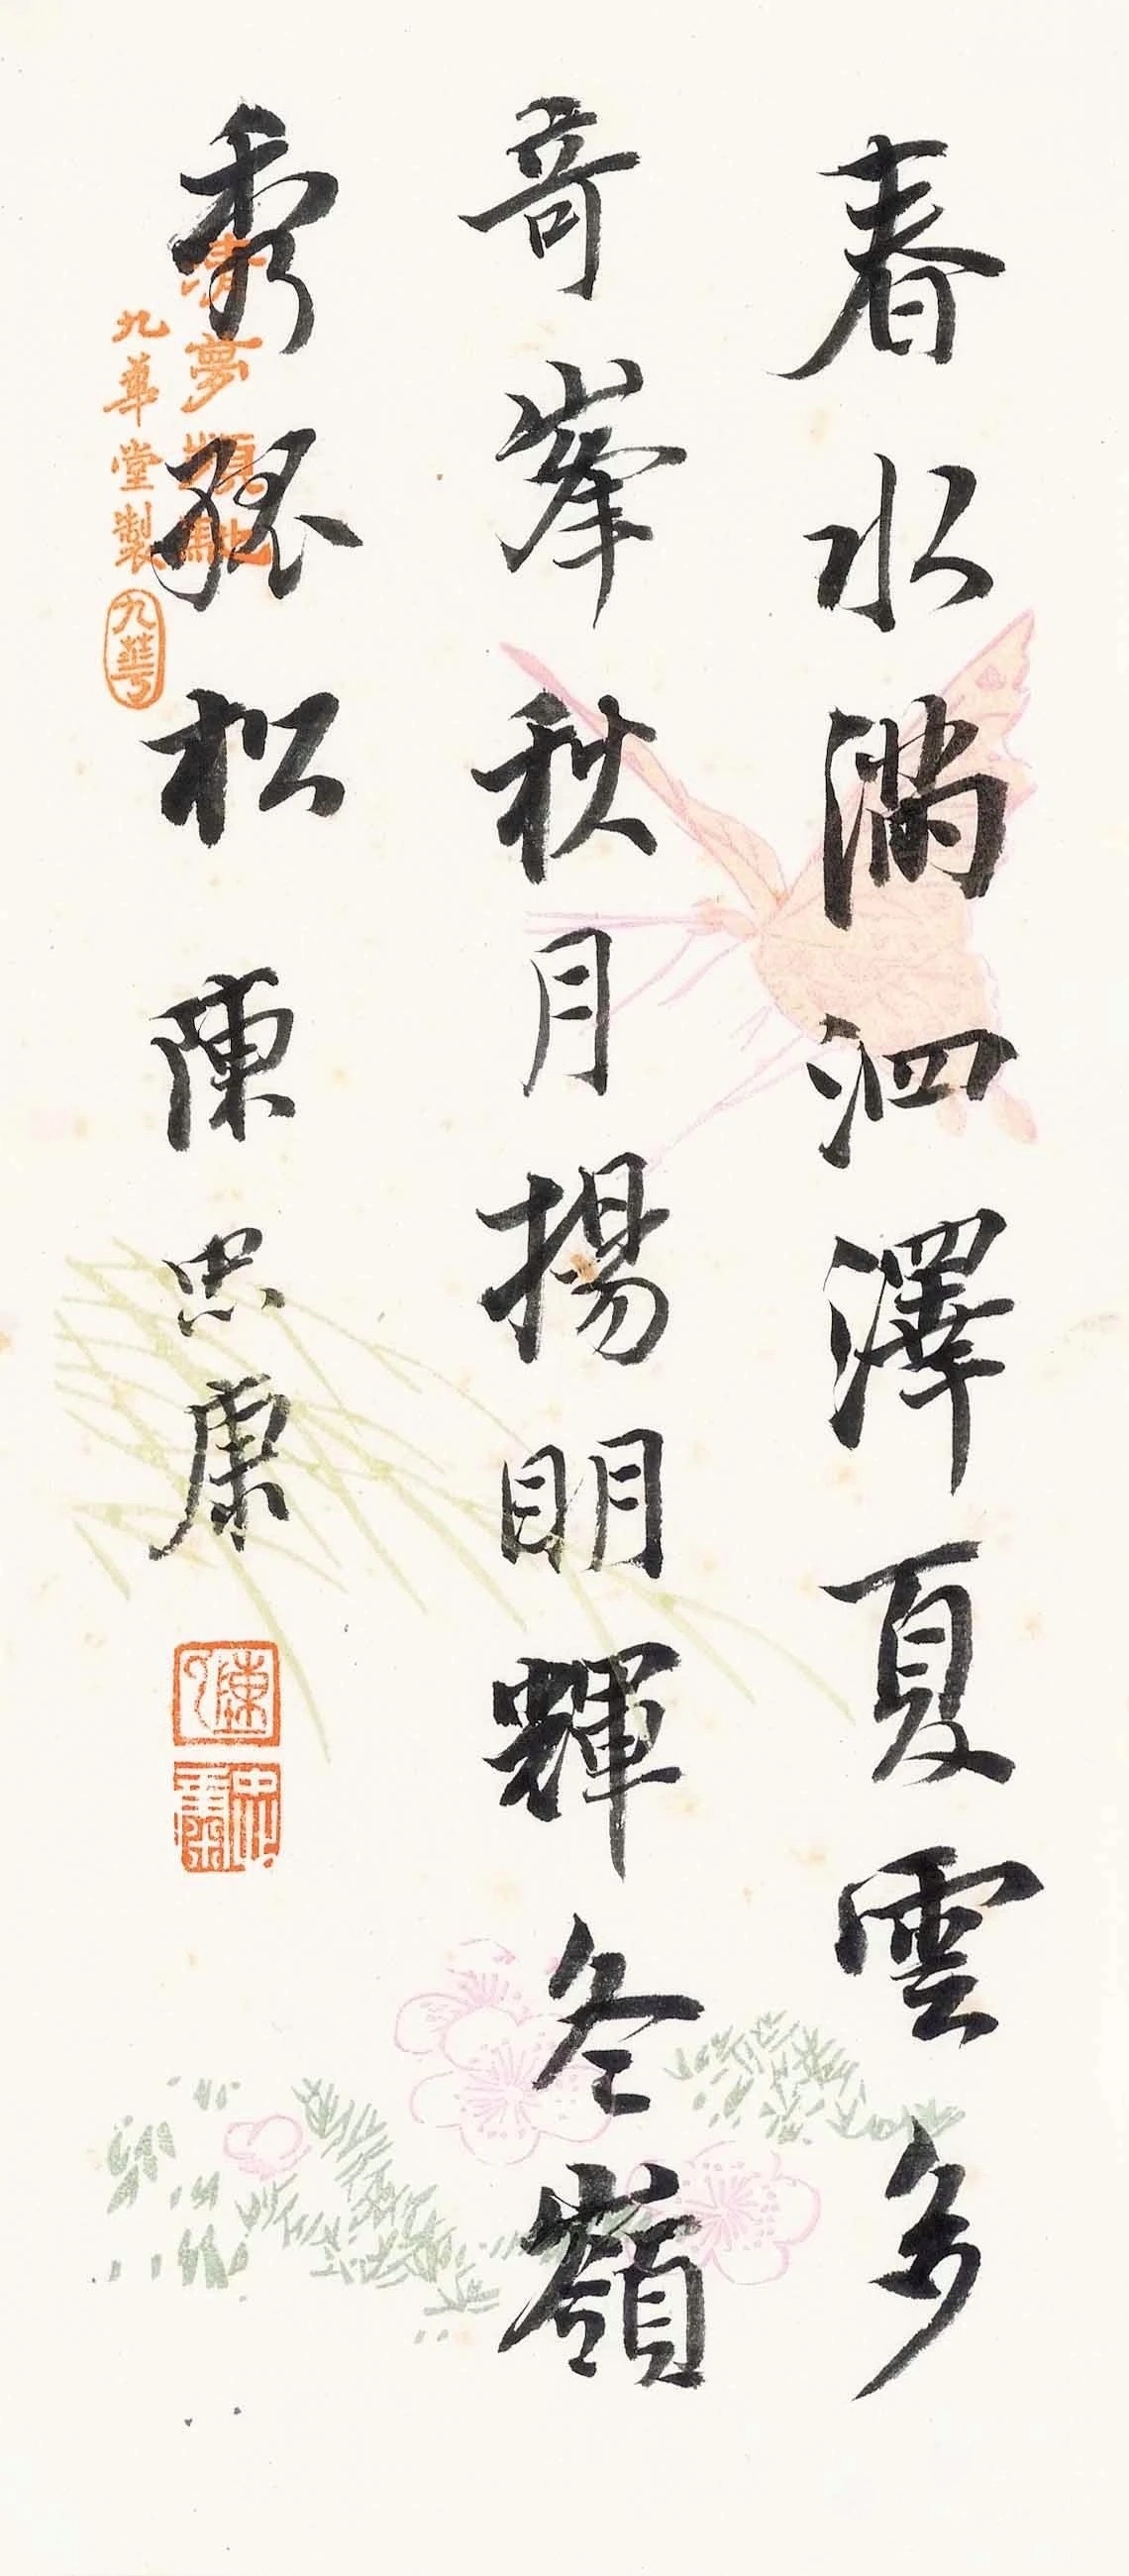 春水滿泗澤夏雲多
奇峯秋月揚明輝冬嶺
秀孤松 陳忠康
清夢
九華堂製
九華
陳
忠康